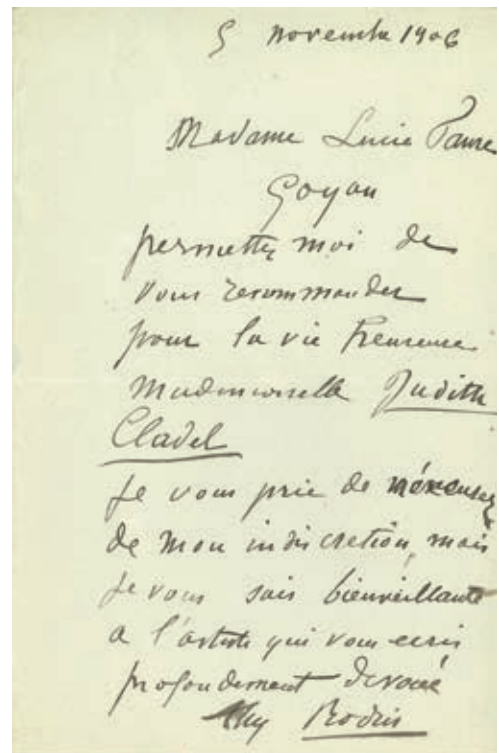 5 novembre 1906
Madame Lucie Faure
Goyau
permettez moi de
vous recommander
pour la vie heureuse
Mademoiselle Judith
Cladel
je vous prie de m'éxcusez
de mon indiscretion, mais
je vous sais bienveillante
a l'artiste qui vous ecris
profondement devoué
Aug Rodin